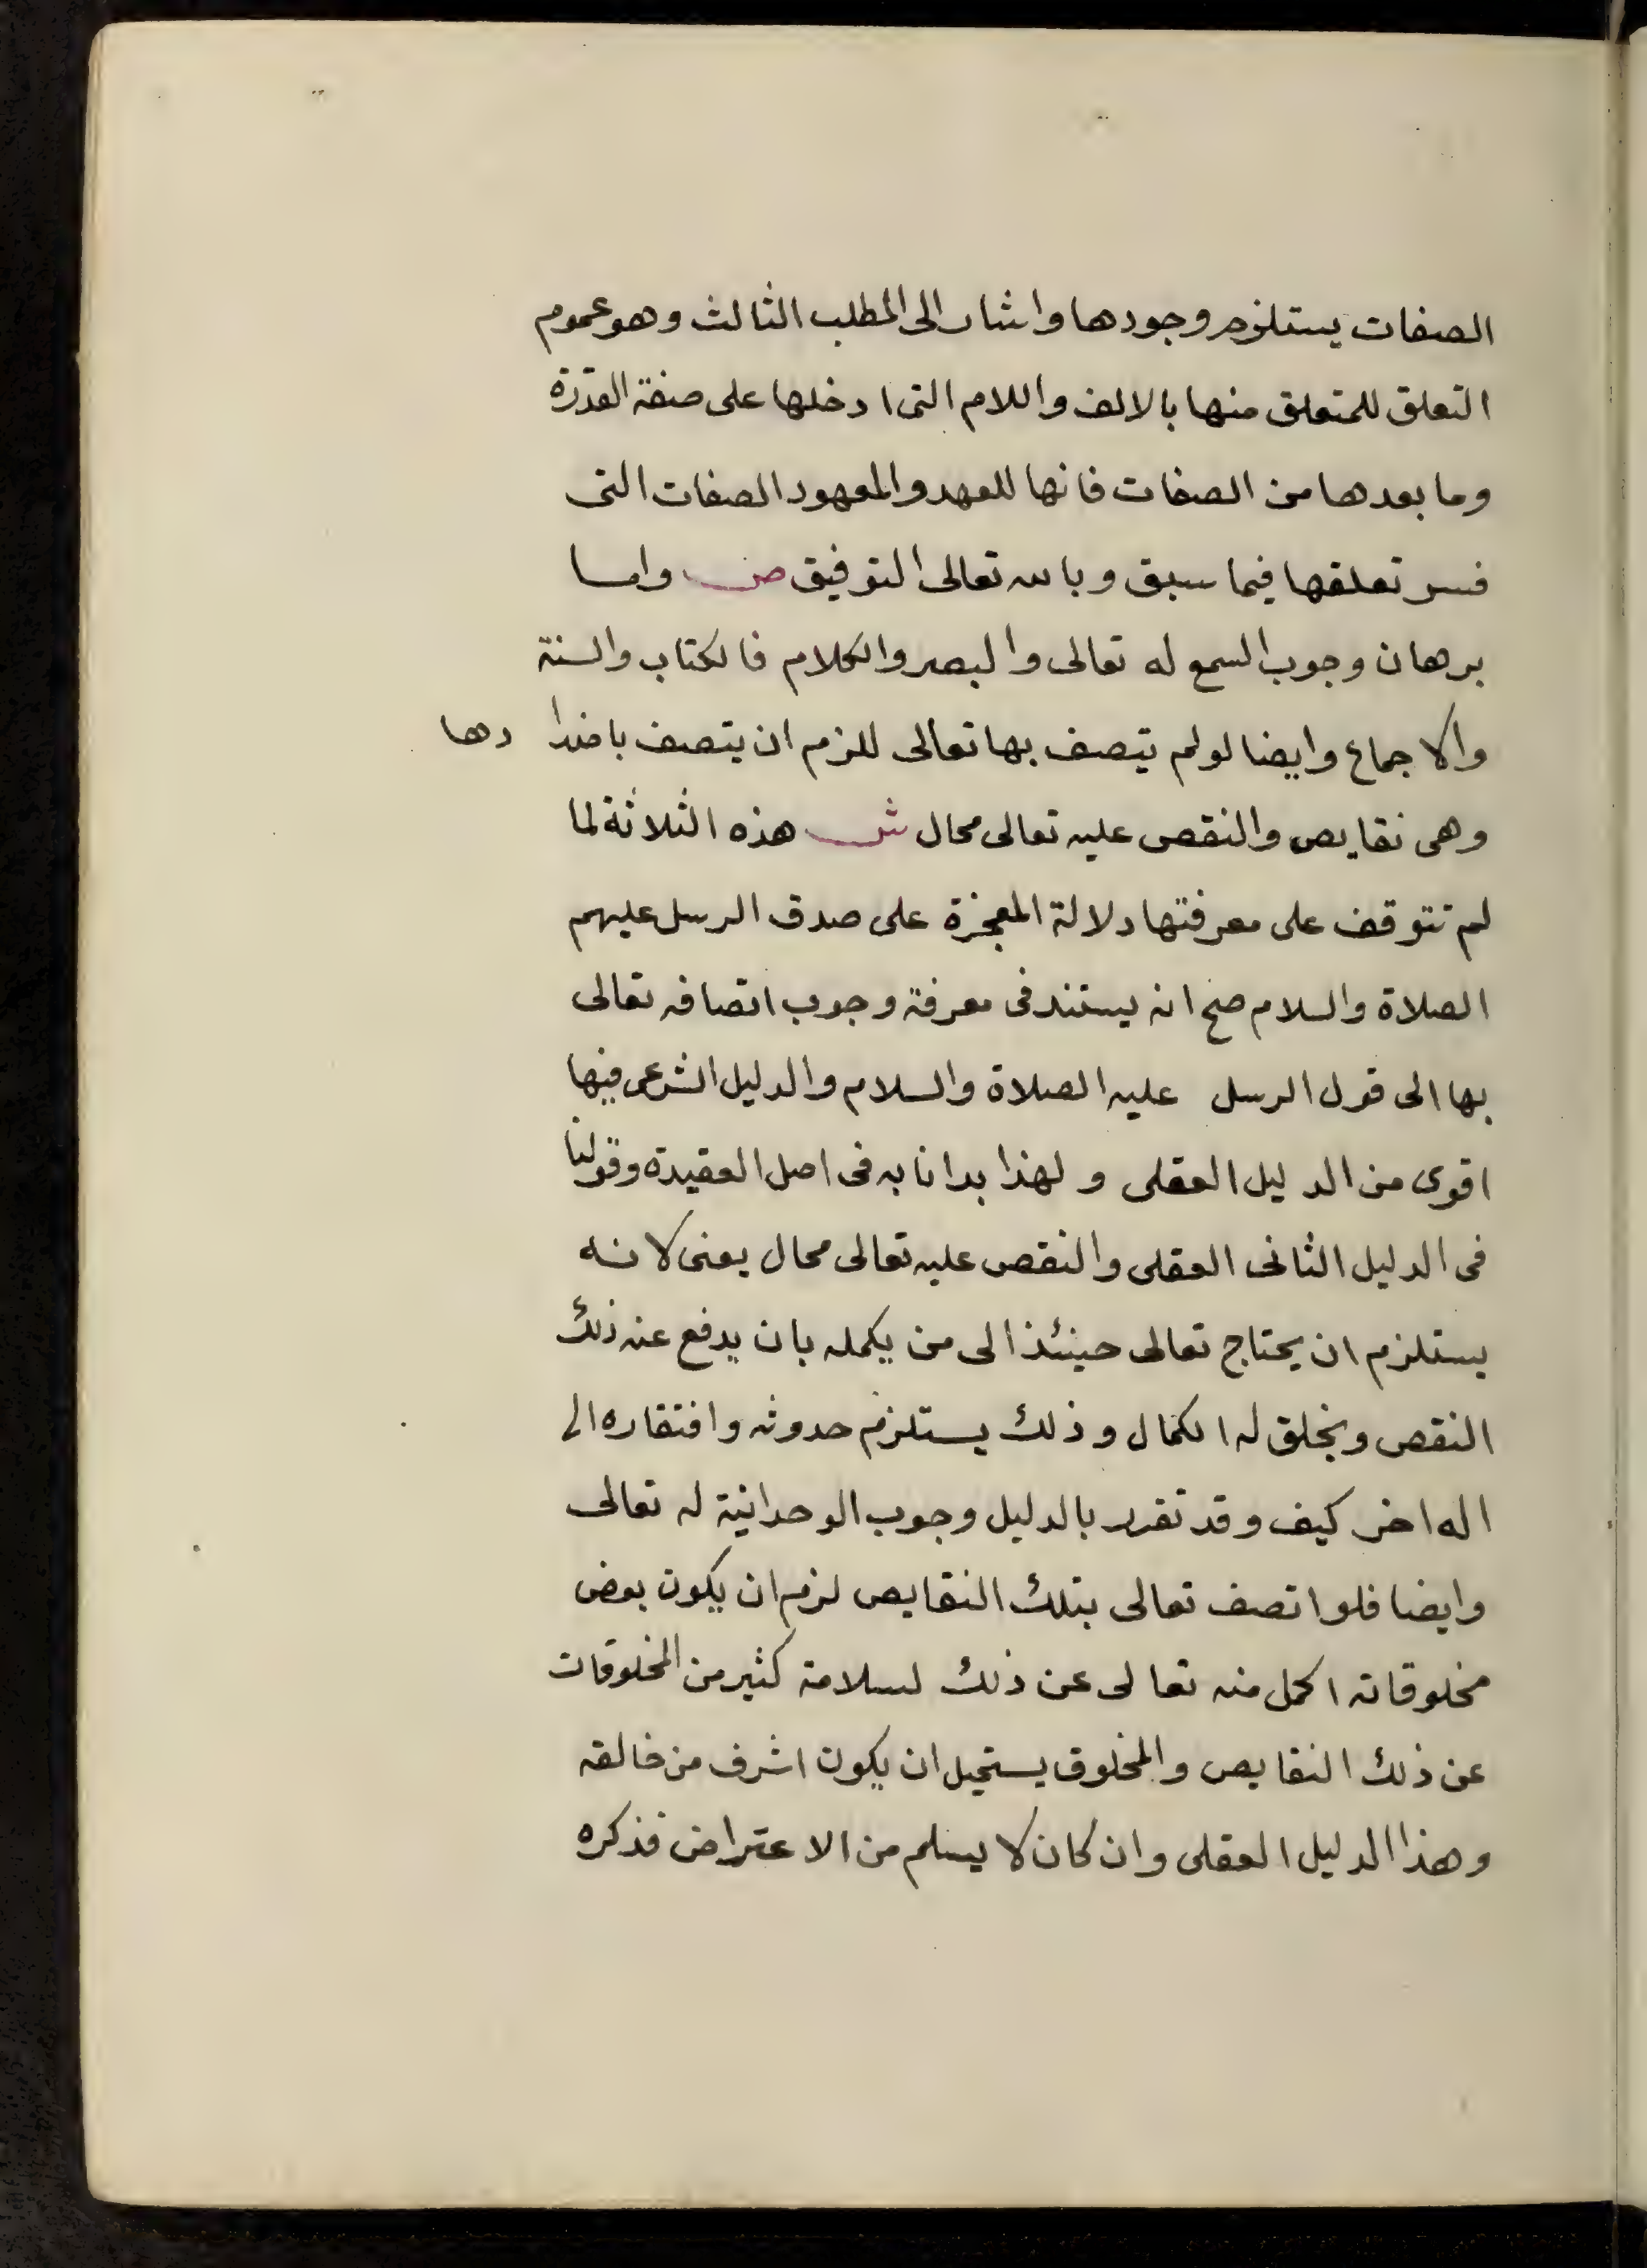 الصفات يستلزم وجودها واشار الى المطلب الثالث وهو عموم
التعلق للمتعلق منها بالالف واللام التى ادخلها على صفة القدرة
وما بعدها من الصفات فانها للعهد والمعهود الصفات التى
فسر تعلقها فيما سبق وبالله تعالى التوفيق ص واما
برهان وجوب السمع له تعالى والبصر والكلام فالكتاب والسنة
والاجماع وايضا لو لم يتصف بها تعالى للزم ان يتصف باضدا دها
وهى نقايص والنقص عليه تعالى محال ش هذه الثلاثة لما
لم تتوقف على معرفتها دلالة المعجزة على صدق الرسل عليهم
الصلاة والسلام صح انه يستند فى معرفة وجوب اتصافه تعالى
بها الى قول الرسل عليه الصلاة والسلام والدليل الشرعى فيها
اقوى من الدليل العقلى ولهذا بدانا به فى اصل العقيدة وقولنا
فى الدليل الثانى العقلى والنقص عليه تعالى محال يعنى لانه
يستلزم ان يحتاج تعالى حينئذ الى من يكمله بان يدفع عنه ذلك
النقص ويخلق له الكمال وذلك يستلزم حدوثه وافتقاره الى
اله اخر كيف وقد تقرر بالدليل وجوب الوحدانية له تعالى
وايضا فلو اتصف تعالى بتلك النقايص لزم ان يكون بعض
مخلوقاته اكمل منه تعالى عن ذلك لسلامة كثير من المخلوقات
عن ذلك النقايص والمخلوق يستحيل ان يكون اشرف من خالقه
وهذا الدليل العقلى وان كان لا يسلم من الاعتراض فذكره